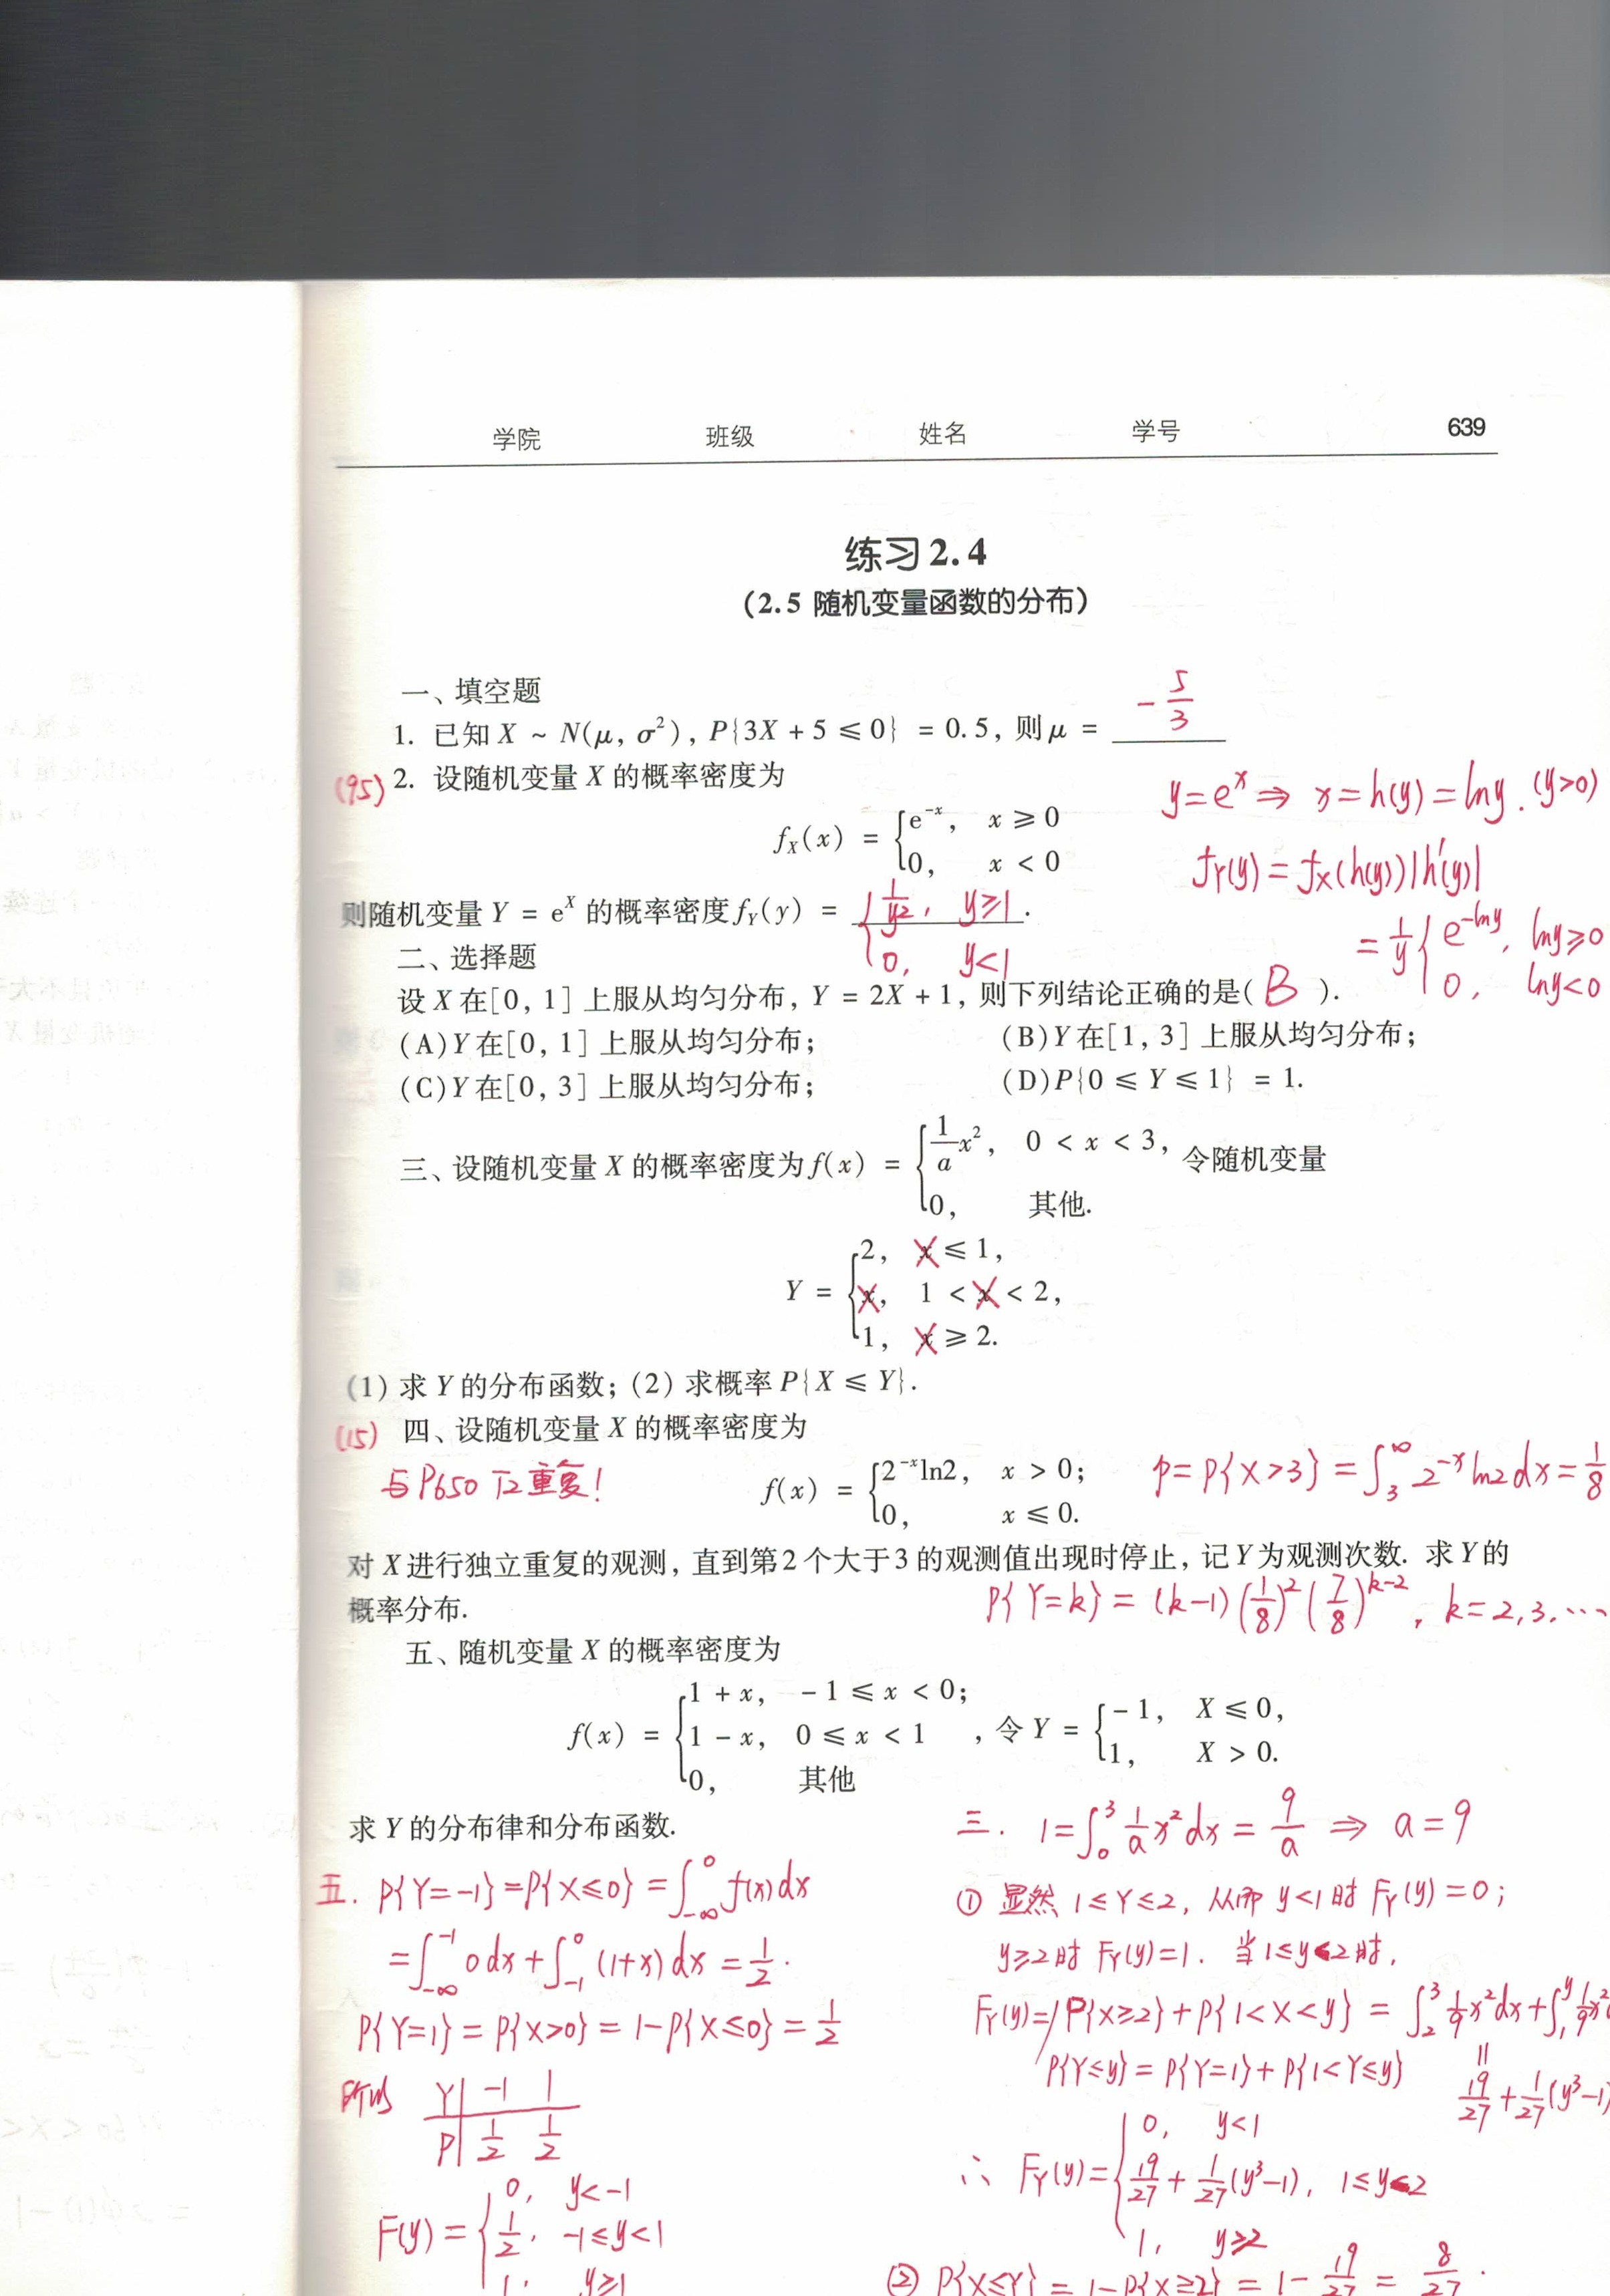 学院 班级 姓名 学号 639
练习2.4
(2.5 随机变量函数的分布)
一、填空题
1. 已知 X ~ N(μ, σ²), P{3X + 5 ≤ 0} = 0.5, 则 μ = -5/3
(95) 2. 设随机变量 X 的概率密度为
f_X(x) = { e^{-x}, x ≥ 0
0, x < 0
y=e^x ⇒ x=h(y)=lny. (y>0)
f_Y(y)=f_X(h(y))|h'(y)|
= 1/y { e^{-lny}, lny≥0
0, lny<0
则随机变量 Y = e^X 的概率密度 f_Y(y) = { 1/y², y≥1.
0, y<1
二、选择题
设 X 在[0, 1] 上服从均匀分布, Y = 2X + 1, 则下列结论正确的是( B ).
(A) Y 在[0, 1] 上服从均匀分布; (B) Y 在[1, 3] 上服从均匀分布;
(C) Y 在[0, 3] 上服从均匀分布; (D) P{0 ≤ Y ≤ 1} = 1.
三、设随机变量 X 的概率密度为 f(x) = { 1/a x², 0 < x < 3, 令随机变量
0, 其他.
Y = { 2, X ≤ 1,
X, 1 < X < 2,
1, X ≥ 2.
(1) 求 Y 的分布函数; (2) 求概率 P{X ≤ Y}.
(15) 四、设随机变量 X 的概率密度为
与P650 T2重复!
f(x) = { 2^{-x}ln2, x > 0;
0, x ≤ 0.
p=P{X>3}=∫_3^∞ 2^{-x}ln2dx=1/8
对 X 进行独立重复的观测, 直到第2个大于3的观测值出现时停止, 记 Y 为观测次数. 求 Y 的
概率分布.
P{Y=k}=(k-1)(1/8)²(7/8)^{k-2}, k=2,3,…
五、随机变量 X 的概率密度为
f(x) = { 1 + x, -1 ≤ x < 0;
1 - x, 0 ≤ x < 1
0, 其他
, 令 Y = { -1, X ≤ 0,
1, X > 0.
求 Y 的分布律和分布函数.
五. P{Y=-1}=P{X≤0}=∫_{-∞}^0 f(x)dx
=∫_{-∞}^{-1} 0dx+∫_{-1}^0 (1+x)dx=1/2.
P{Y=1}=P{X>0}=1-P{X≤0}=1/2
所以 Y | -1 1
P | 1/2 1/2
F(y)={ 0, y<-1
1/2, -1≤y<1
1, y≥1
三. 1=∫_0^3 1/a x²dx=9/a ⇒ a=9
① 显然 1≤Y≤2, 从而 y<1时 F_Y(y)=0;
y≥2时 F_Y(y)=1. 当1≤y<2时,
F_Y(y)=P{X≥2}+P{1<X<y}=∫_2^3 1/9 x²dx+∫_1^y 1/9 x²
P{Y≤y}=P{Y=1}+P{1<Y≤y} = 19/27+1/27(y³-1)
∴ F_Y(y)={ 0, y<1
19/27+1/27(y³-1), 1≤y<2
1, y≥2
② P{X≤Y}=1-P{X≥2}=1-19/27=8/27.